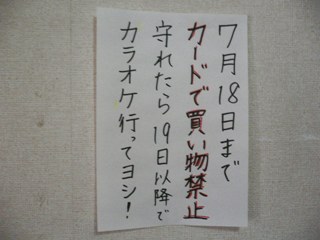 7月18日まで
カードで買い物禁止
守れたら19日以降で
カラオケ行ってヨシ!